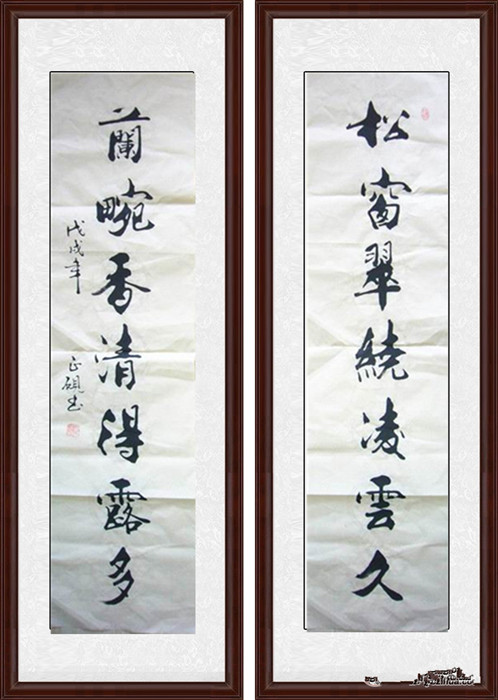 松窗翠繞凌雲久
蘭畹香清得露多
戊戌年
正硯书